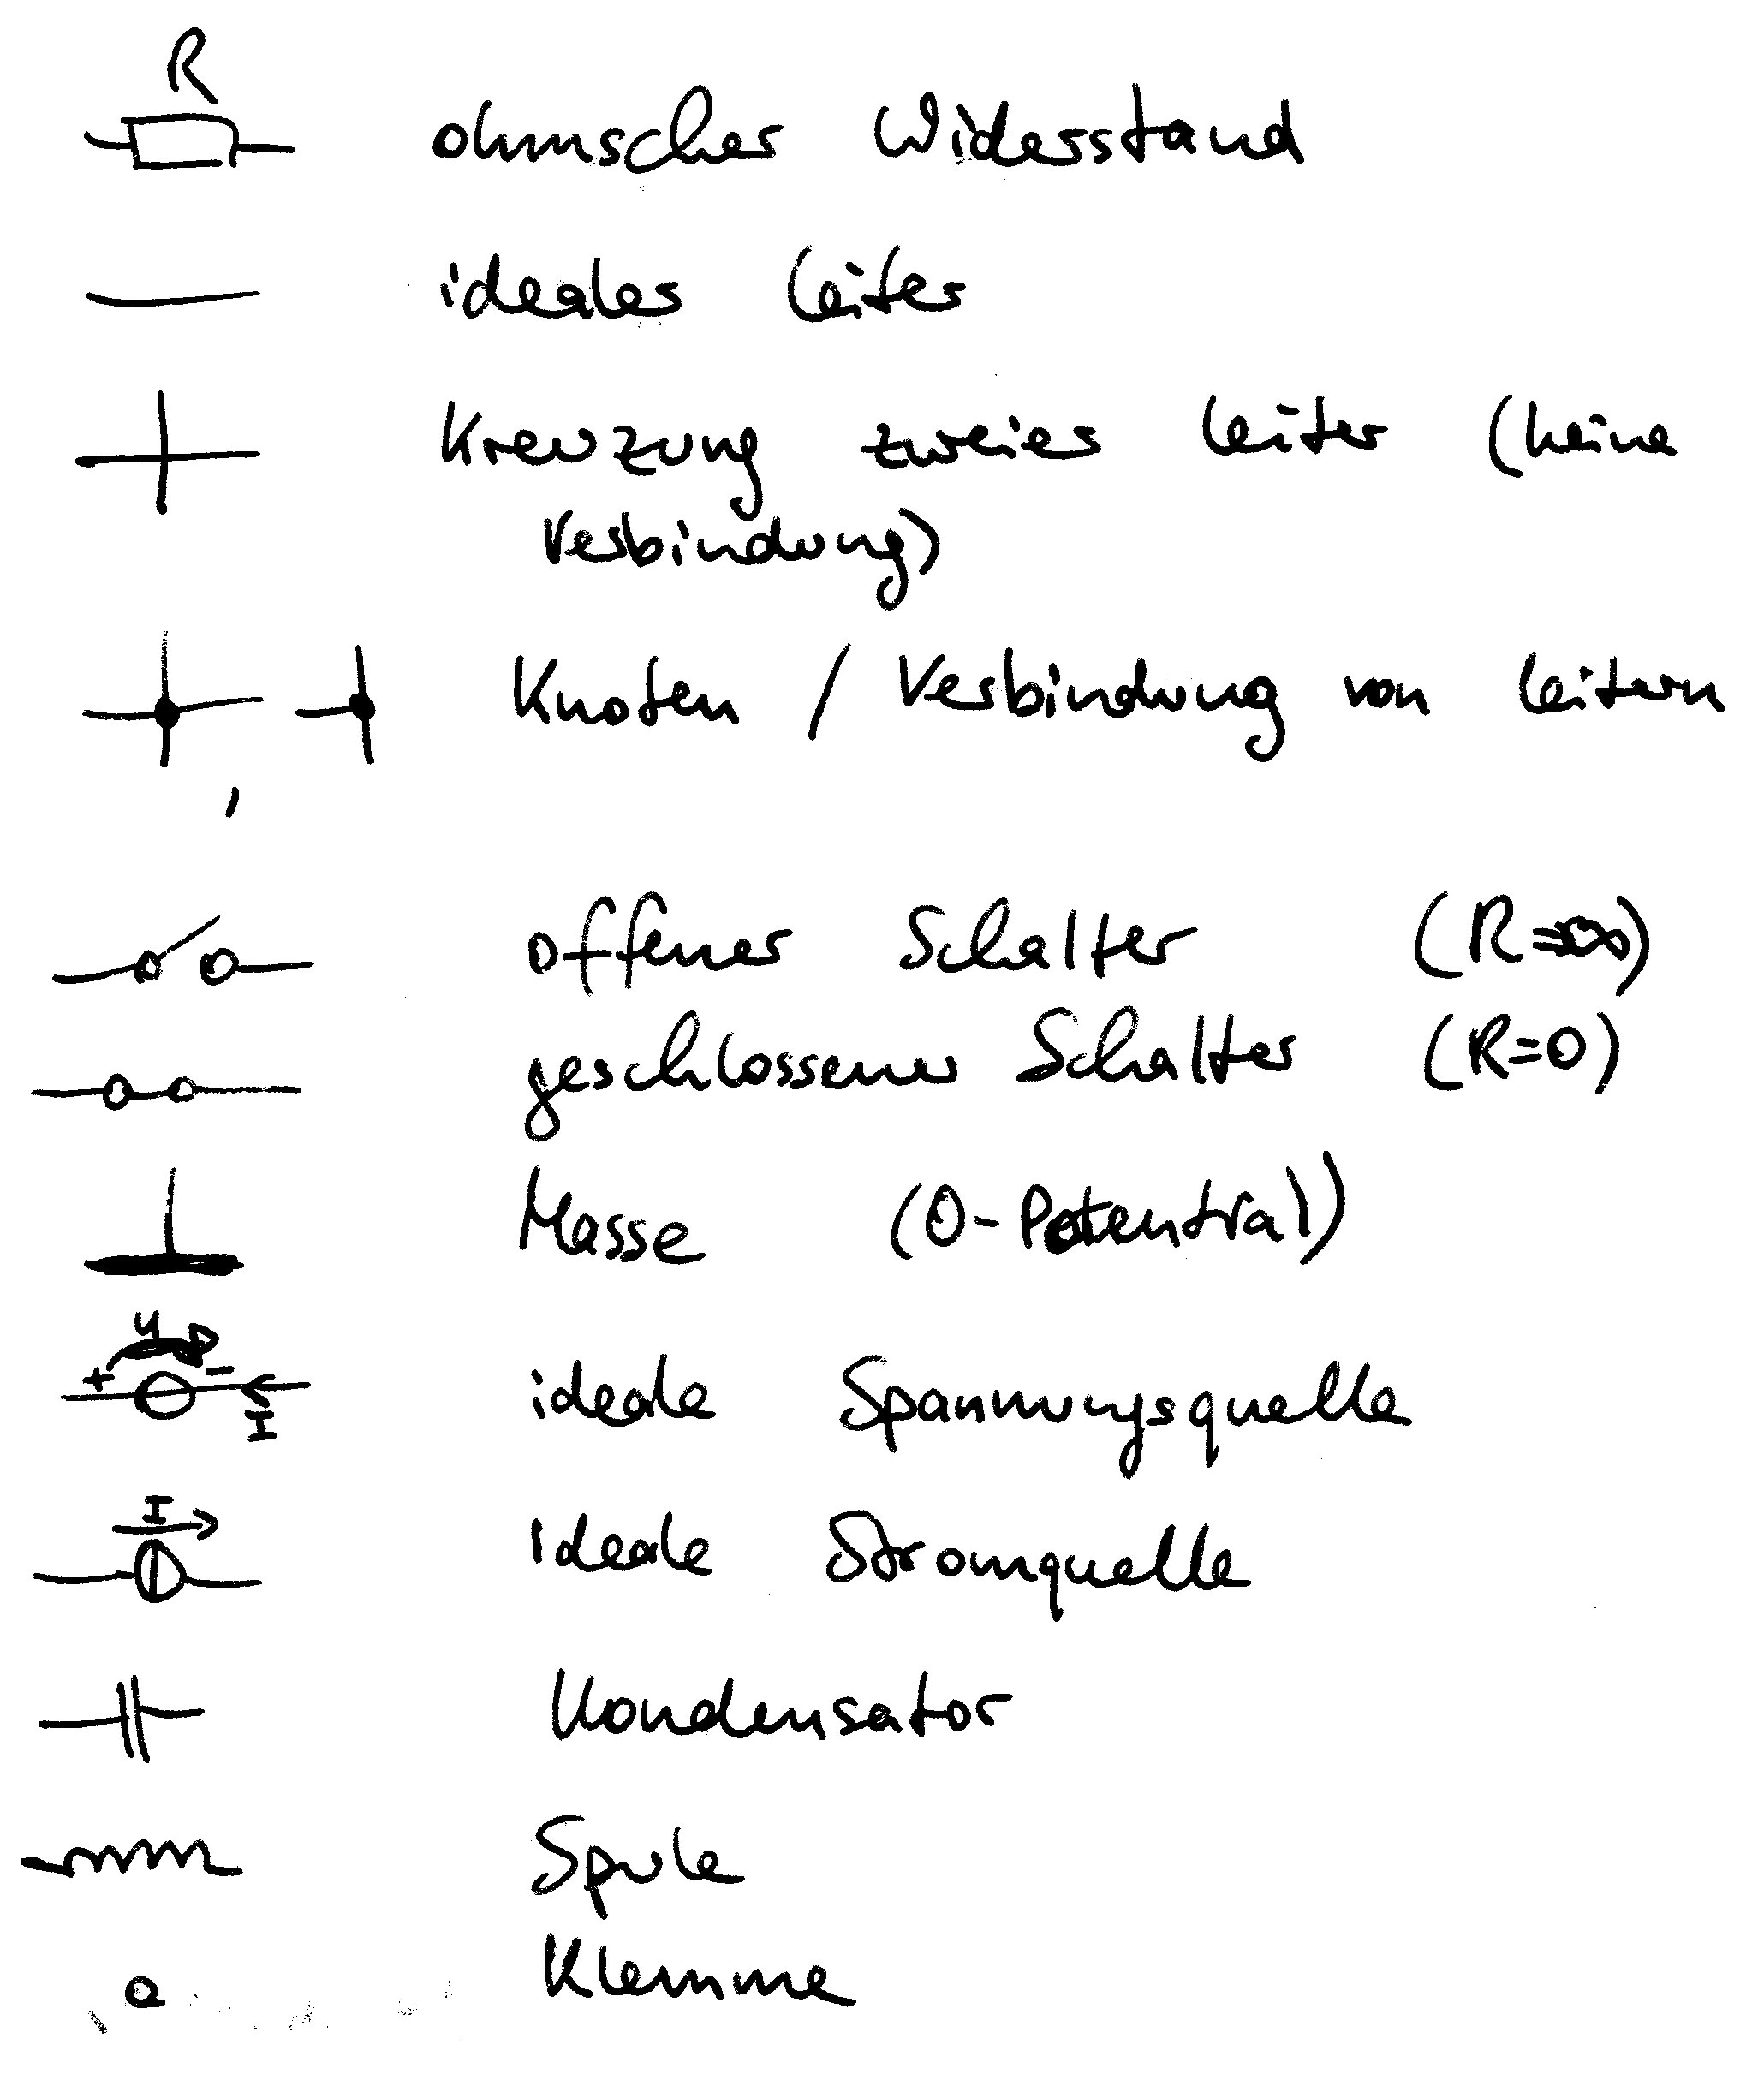 R
ohmscher Widerstand
idealer Leiter
Kreuzung zweier Leiter (keine
Verbindung)
, Knoten / Verbindung von Leitern
offener Schalter (R=∞)
geschlossener Schalter (R=0)
Masse (0-Potential)
U
+ - ideale Spannungsquelle
I
I
ideale Stromquelle
Kondensator
Spule
Klemme